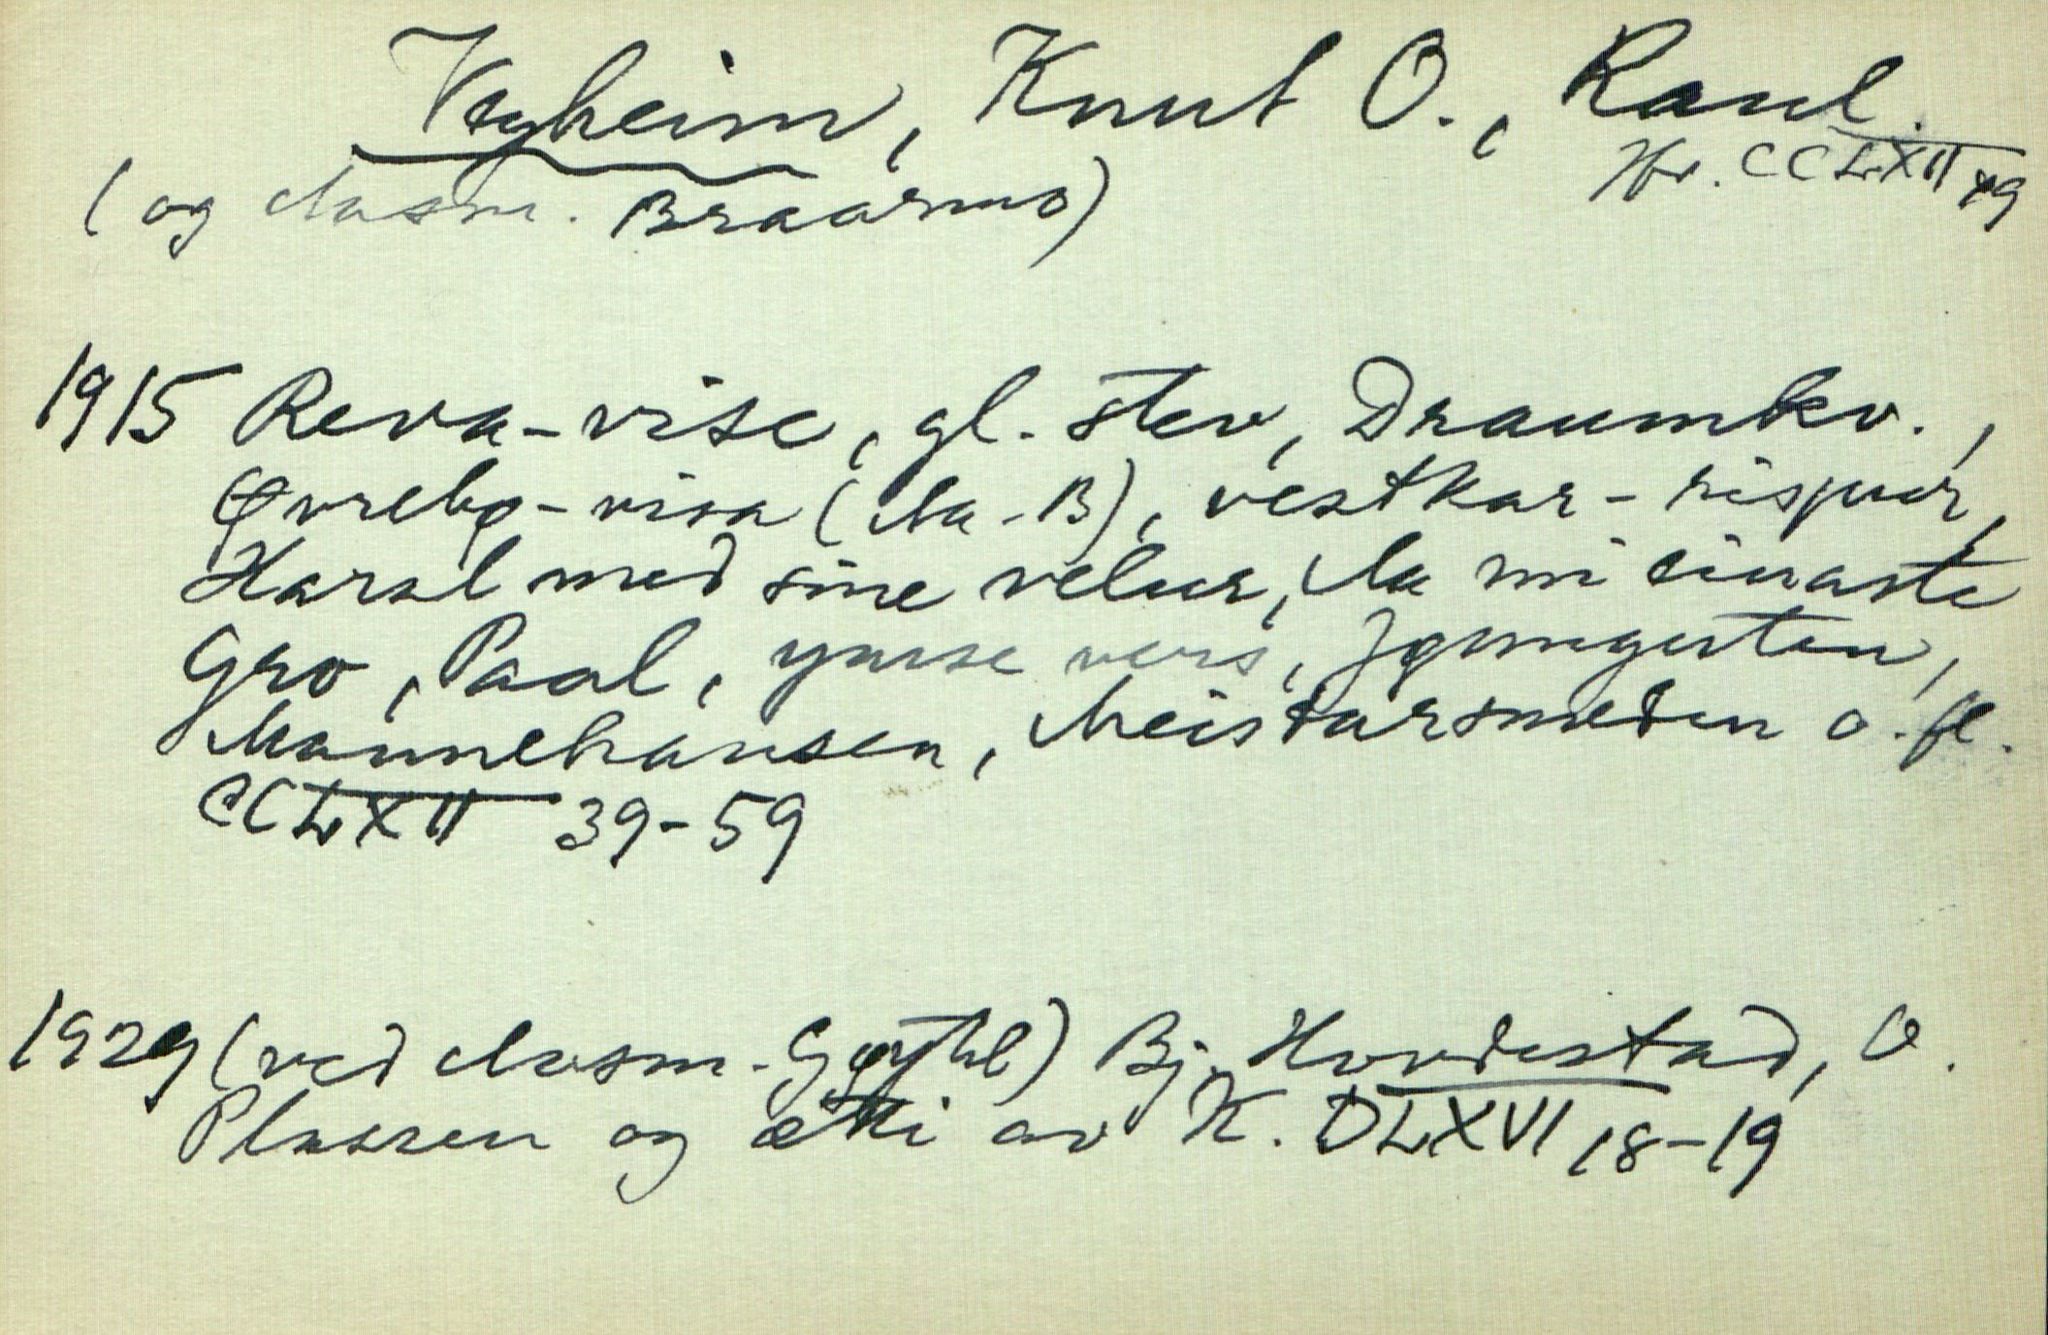 Vegheim, Knut O., Raul.
Hr. CCLXII 49
(og Aasm. Braarmo)
1915 Reva-vise, gl. stev, Draumkv.,
Øvrebø-visa (Aa-B), vestkar-rispur,
Haral med sine velur, Aa mi einaste
Gro, Paal, ymse vers, Jømgeuten,
Mannehausen, Meistarsmeden o. fl.
CCLXII 39-59
1929 (ved Aasm. ) Bj. Hovdestad, O.
Plassen og ætti av K. DLXVI 18-19